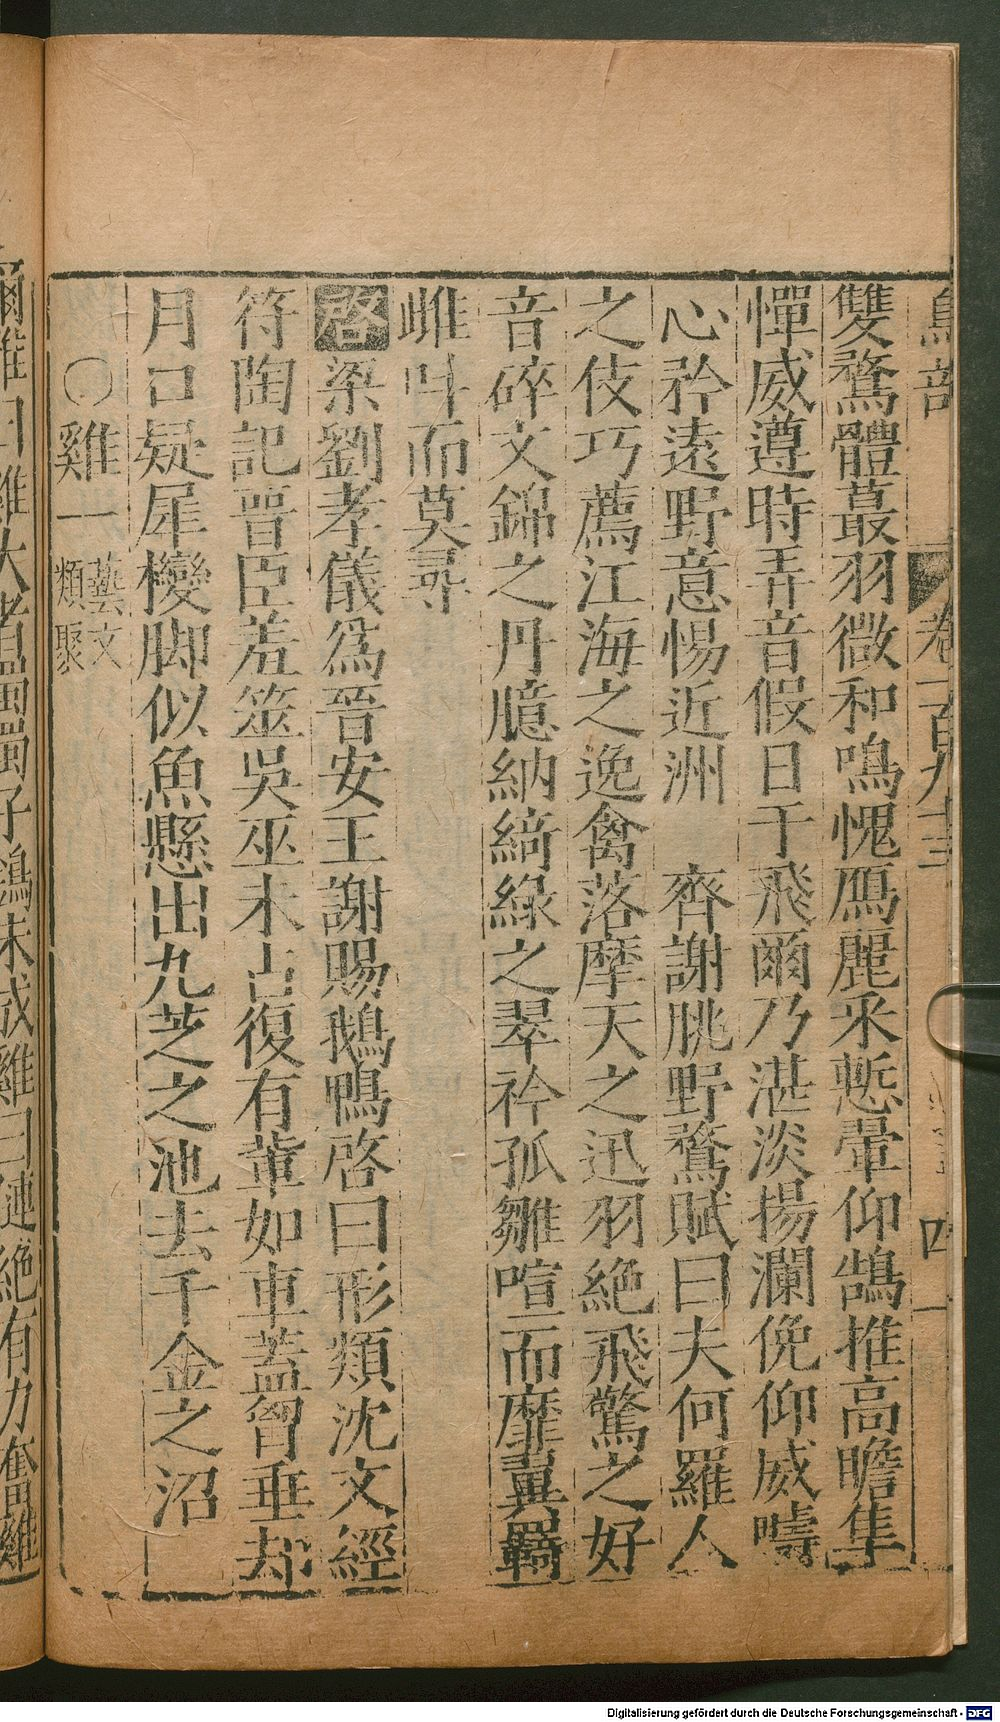 鳥部　卷一百九十三　四
雙鶩體蕞羽微和鳴愧鴈麗釆慙鞏仰鵠推高瞻隼
憚威遵時弄音假日于飛爾乃湛淡揚瀾俛仰威疇
心矜遠野意惕近洲　齊謝朓野鶩賦曰夫何羅人
之伎巧薦江海之逸禽落摩天之迅羽絶飛驚之好
音碎文錦之丹臆納綺綠之翠衿孤雛喧而靡翼羈
雌叶而莫尋
啓梁劉孝儀爲晉安王謝賜鵝鴨啓曰形類沈文經
符陶記晉臣羞筮吳巫未占復有葷如車蓋曾垂却
月口疑犀欒脚似魚懸出九芝之池去千金之沼
〇雞一藝文類聚
爾雅曰雞大者蜀蜀子鶵未成雞曰僆絶有力奮雞
Digitalisierung gefördert durch die Deutsche Forschungsgemeinschaft - DFG